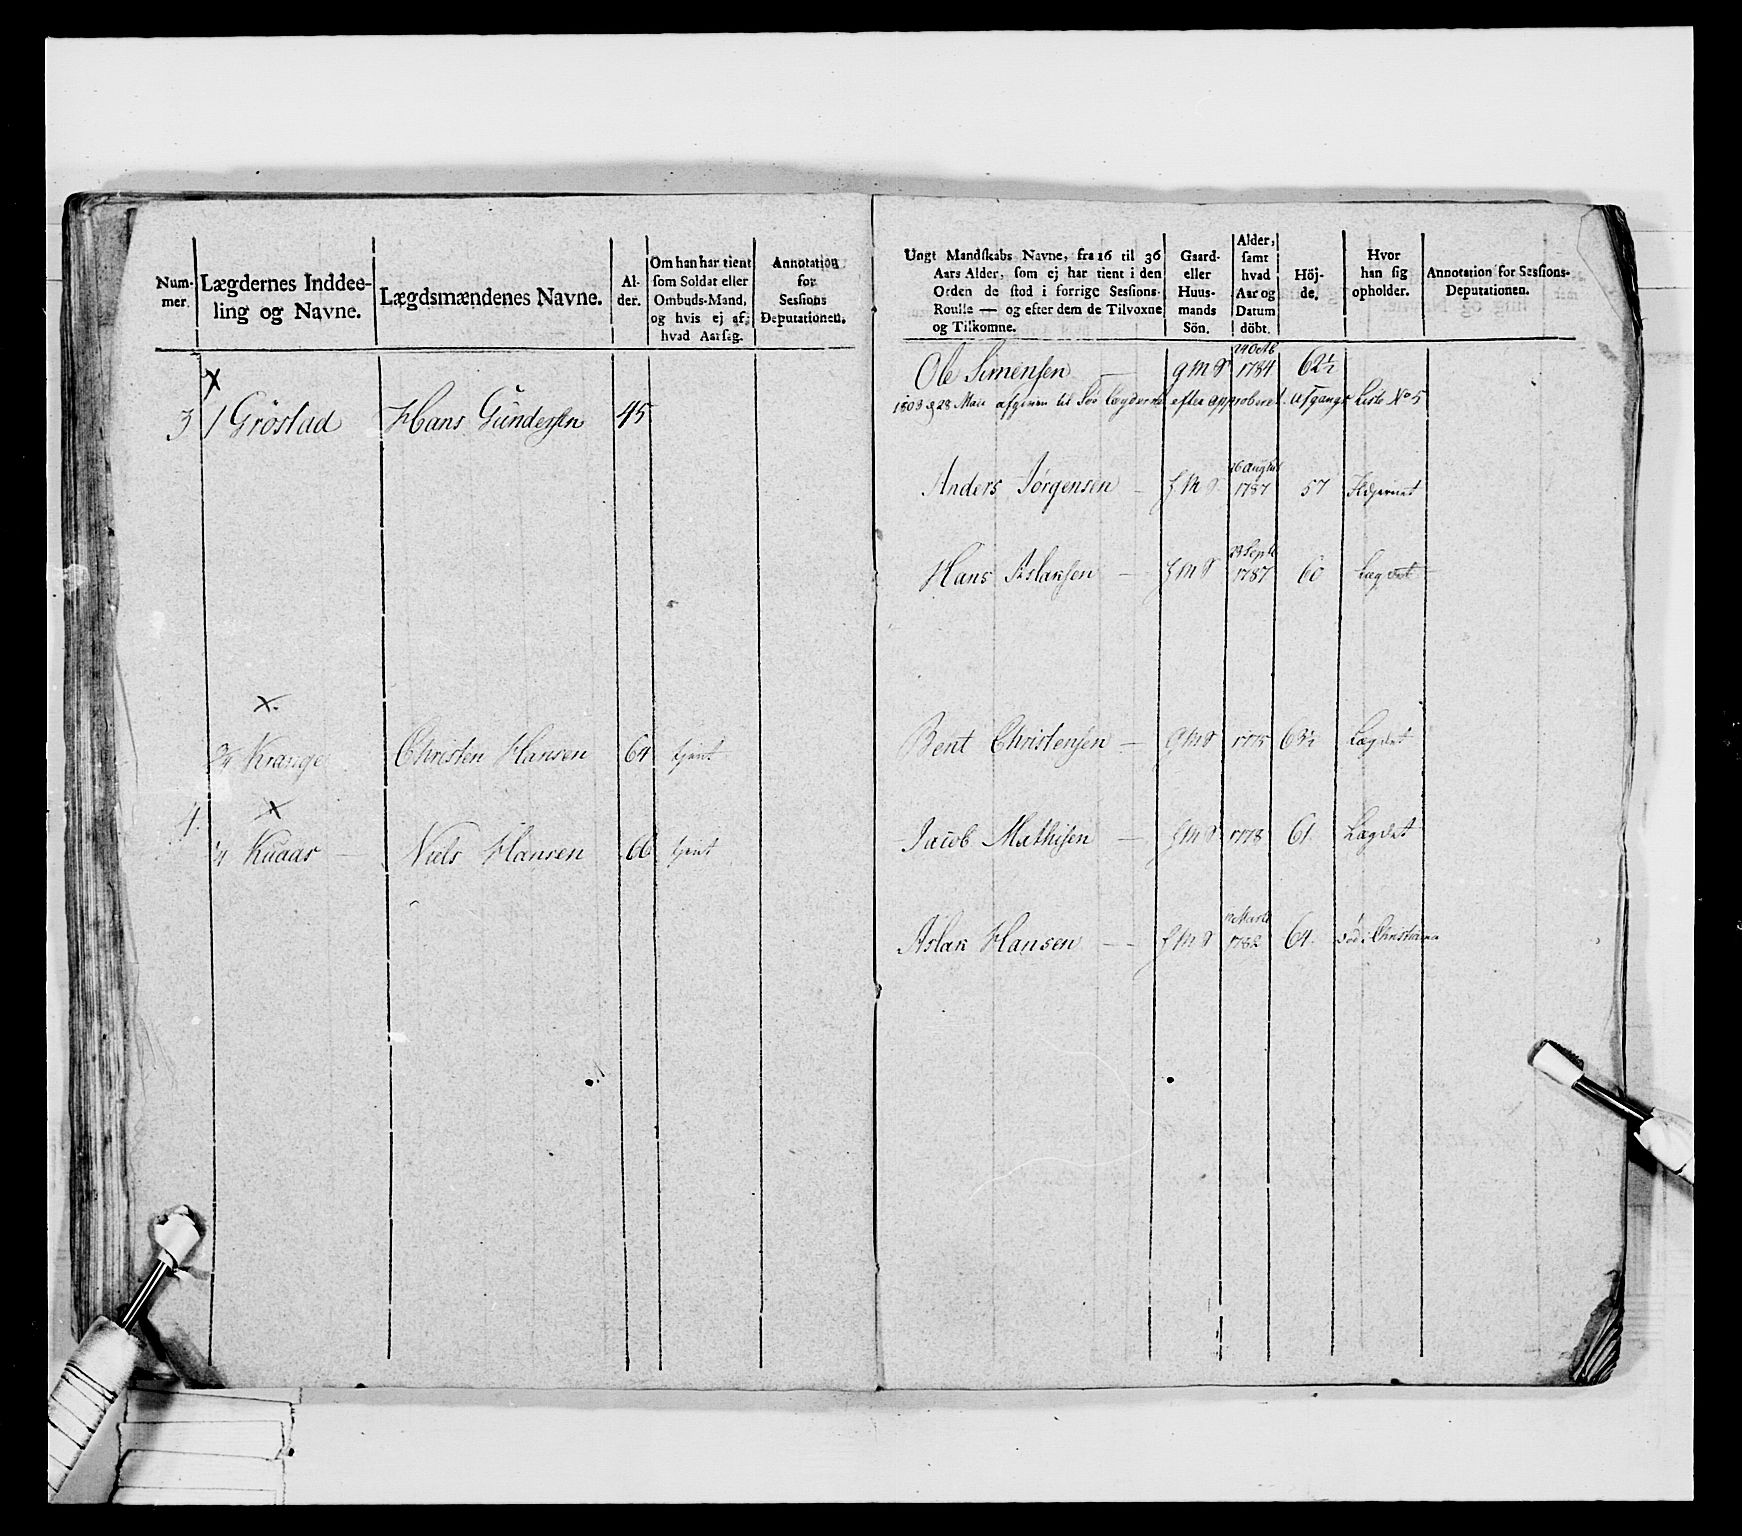 Num-
mer.
Lægdernes Inddee-
ling og Navne.
Lægdsmændenes Navne.
Al-
der.
Om han har tient
som Soldat eller
Ombuds-Mand,
og hvis ej af,
hvad Aarsag.
Annotation
for
Sessions
Deputationen.
x
3 1 Gröstad Hans Gundersen 45
x.
3/4 Krange Christen Hansen 64 tjent
4. x
1/4 Kuaas Niels Hansen 66 tjent
Ungt Mandskabs Navne, fra 16 til 36
Aars Alder, som ej har tient i den
Orden de stod i forrige Sessions-
Roulle — og efter dem de Tilvoxne
og Tilkomne.
Gaard-
eller
Huus-
mands
Sön.
Alder,
samt
hvad
Aar og
Datum
döbt.
Höj-
de.
Hvor
han sig
opholder.
Annotation for Sessions-
Deputationen.
Ole Simensen g M S 24 Octb 1784 62½
1803 d 28 Maii afgiven til Söe Lægderne efter approberet Afgangs Liste No 5
Anders Jörgensen — 26 August 1787 57
Hans Aslaksen — 1787 60 Lægdet
Bent Christensen — g M S 1775 63½ Lægdet
Jacob Mathisen — 1778 61 Lægdet
Aslak Hansen — 1782 64 i Christiania